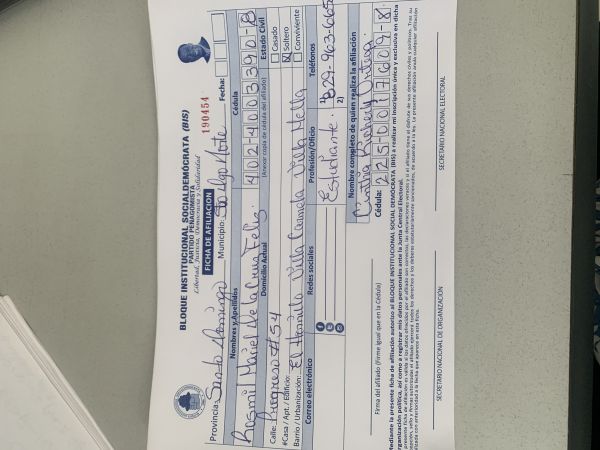 BLOQUE INSTITUCIONAL SOCIALDEMÓCRATA (BIS)
PARTIDO PEÑAGOMISTA
Libertad, Justicia, Democracia y Solidaridad
190454
FICHA DE AFILIACION
Fecha:
Provincia: Santo Domingo Municipio: Sto Dgo Norte
Nombres y Apellidos Cédula
Rosmil Mariel De la Cruz Feliz 402-4003390-8
Domicilio Actual (Anexar copia de cédula del afiliado) Estado Civil
Calle: Progreso #54
Casado
#Casa / Apt. / Edificio: Soltero
Barrio / Urbanización: El Hoyito Villa Carmela Villa Mella Conviviente
Correo electrónico Redes sociales Profesión/Oficio Teléfonos
Estudiante. 1) 829-963-6652
2)
Nombre completo de quien realiza la afiliación
Ortega
Cédula: 225-0017609-8
Firma del afiliado (Firme igual que en la Cédula)
Mediante la presente ficha de afiliación autorizo al BLOQUE INSTITUCIONAL SOCIALDEMOCRATA (BIS) a realizar mi inscripción única y exclusiva en dicha
organización política, así como a registrar mis datos personales ante la Junta Central Electoral.
SECRETARIO NACIONAL DE ORGANIZACIÓN SECRETARIO NACIONAL ELECTORAL